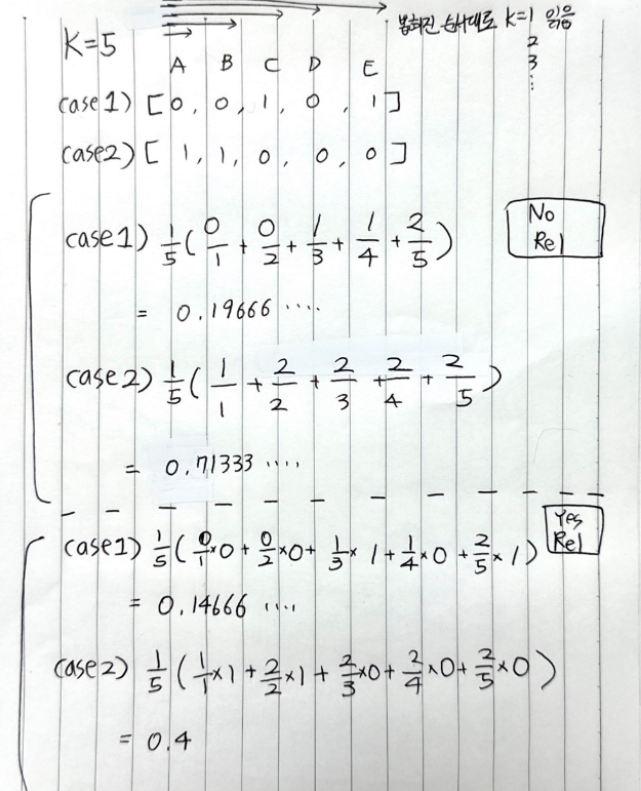 K=5
순서대로 k=1 읽음
2
3
⋮
A B C D E
case1) [0, 0, 1, 0, 1]
case2) [1, 1, 0, 0, 0]
No
Rel
case1) 1/5 ( 0/1 + 0/2 + 1/3 + 1/4 + 2/5 )
= 0.19666 ....
case2) 1/5 ( 1/1 + 2/2 + 2/3 + 2/4 + 2/5 )
= 0.71333 ....
Yes
Rel
case1) 1/5 ( 0/1×0 + 0/2×0 + 1/3×1 + 1/4×0 + 2/5×1 )
= 0.14666 ....
case2) 1/5 ( 1/1×1 + 2/2×1 + 2/3×0 + 2/4×0 + 2/5×0 )
= 0.4